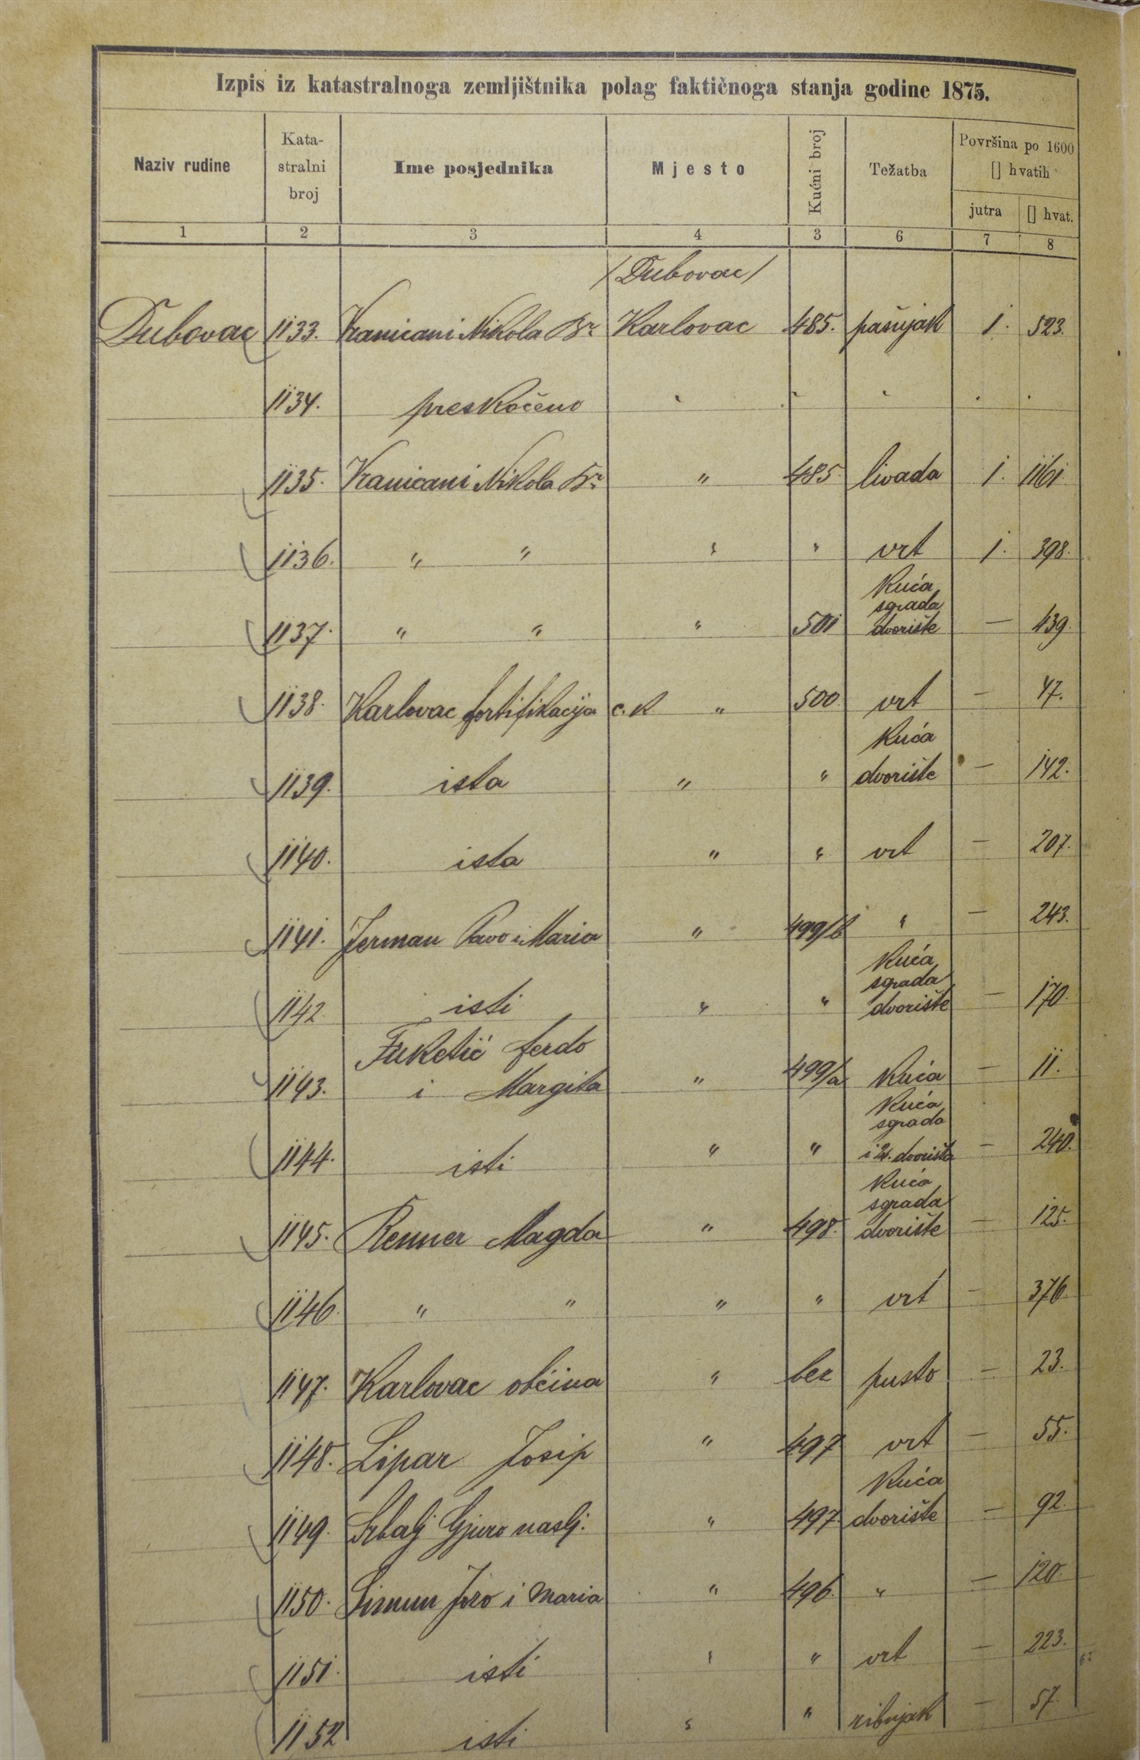 Izpis iz katastralnoga zemljištnika polag faktičnoga stanja godine 1875.
Naziv rudine Kata-stralni broj Ime posjednika Mjesto Kućni broj Težatba Površina po 1600 [] hvatih
jutra [] hvat.
1 2 3 4 3 6 7 8
/Dubovac/
Dubovac 1133. Vranicani Nikola Br. Karlovac 485. pašnjak 1. 523.
1134. preskočeno
1135. Vranicani Nikola Br. " 485. livada 1. 1161.
1136. " " " " vrt 1. 398.
1137. " " " 501 kuća sgrada dvorište — 439.
1138. Karlovac fortifikacija c. k " 500 vrt — 47.
1139. ista " " kuća dvorište — 142.
1140. ista " " vrt — 207.
1141. Jerman Pavo i Maria " 499/b " — 243.
1142 isti " " kuća sgrada dvorište — 170.
1143. Fuketić ferdo i Margita " 499/a kuća — 11.
1144. isti " " kuća sgrada i 2. dvorišta — 240.
1145. Renner Magda " 498. kuća sgrada dvorište — 125.
1146. " " " " vrt — 376
1147. Karlovac občina " bez pusto — 23.
1148. Lipar Josip " 497 vrt — 55.
1149. Srbalj Gjuro naslj. " 497 kuća dvorište — 92.
1150. Simun Jozo i Maria " 496 " — 120.
1151. isti " " vrt — 223.
1152 isti " " ribnjak — 57.